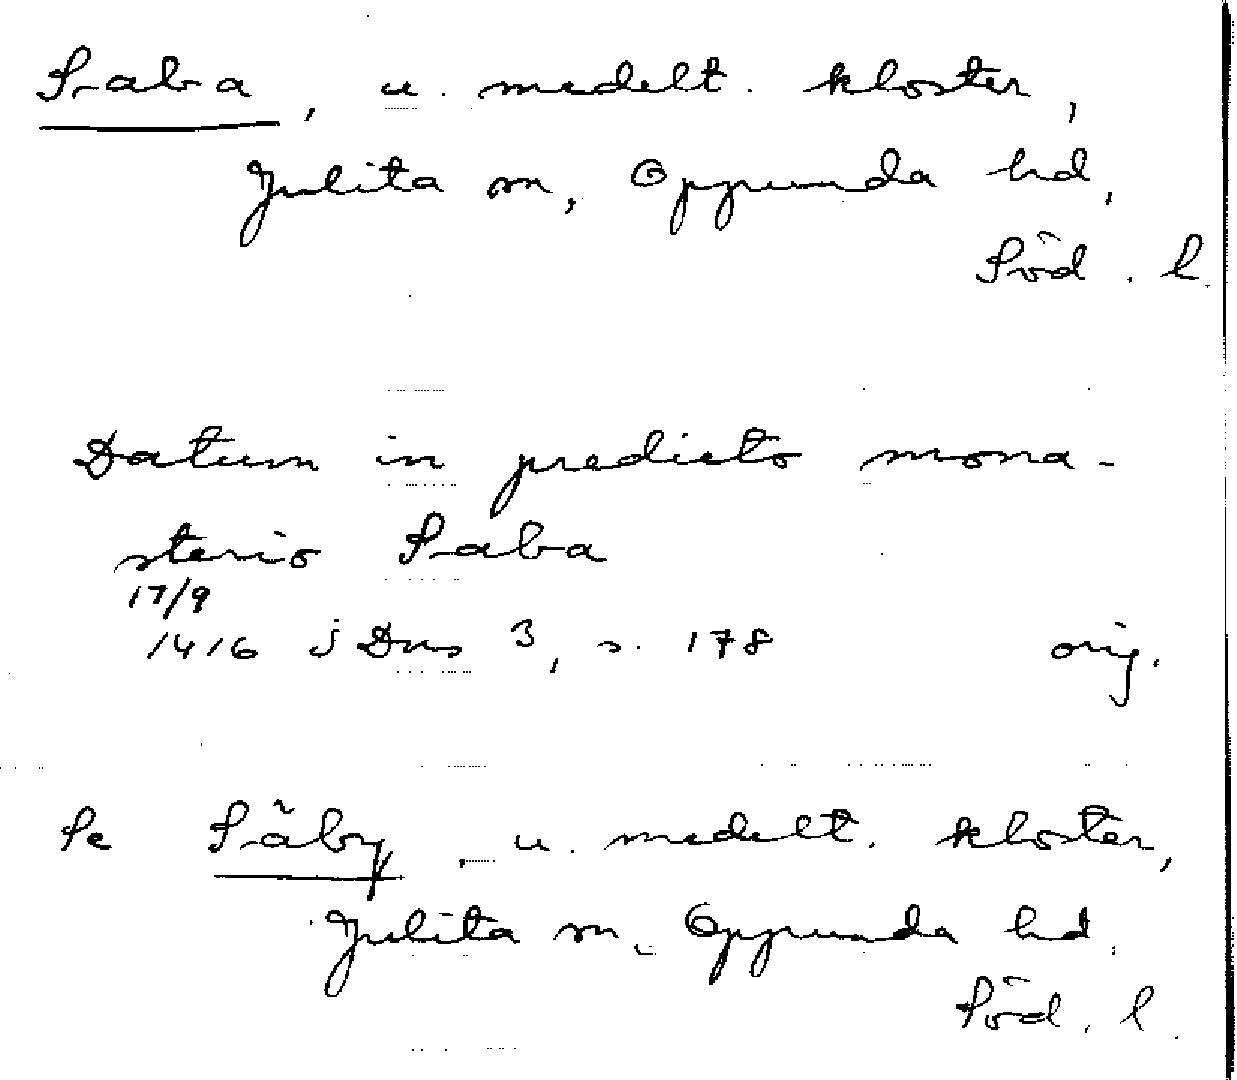 Saba, u. medelt. kloster,
Julita sn, Oppunda hd,
Söd. l.
Datum in predicto mona-
sterio Saba
17/9
1416 j Dns 3, s. 178 orig.
Se Säby, u. medelt. kloster,
Julita sn. Oppunda hd.
Söd. l.